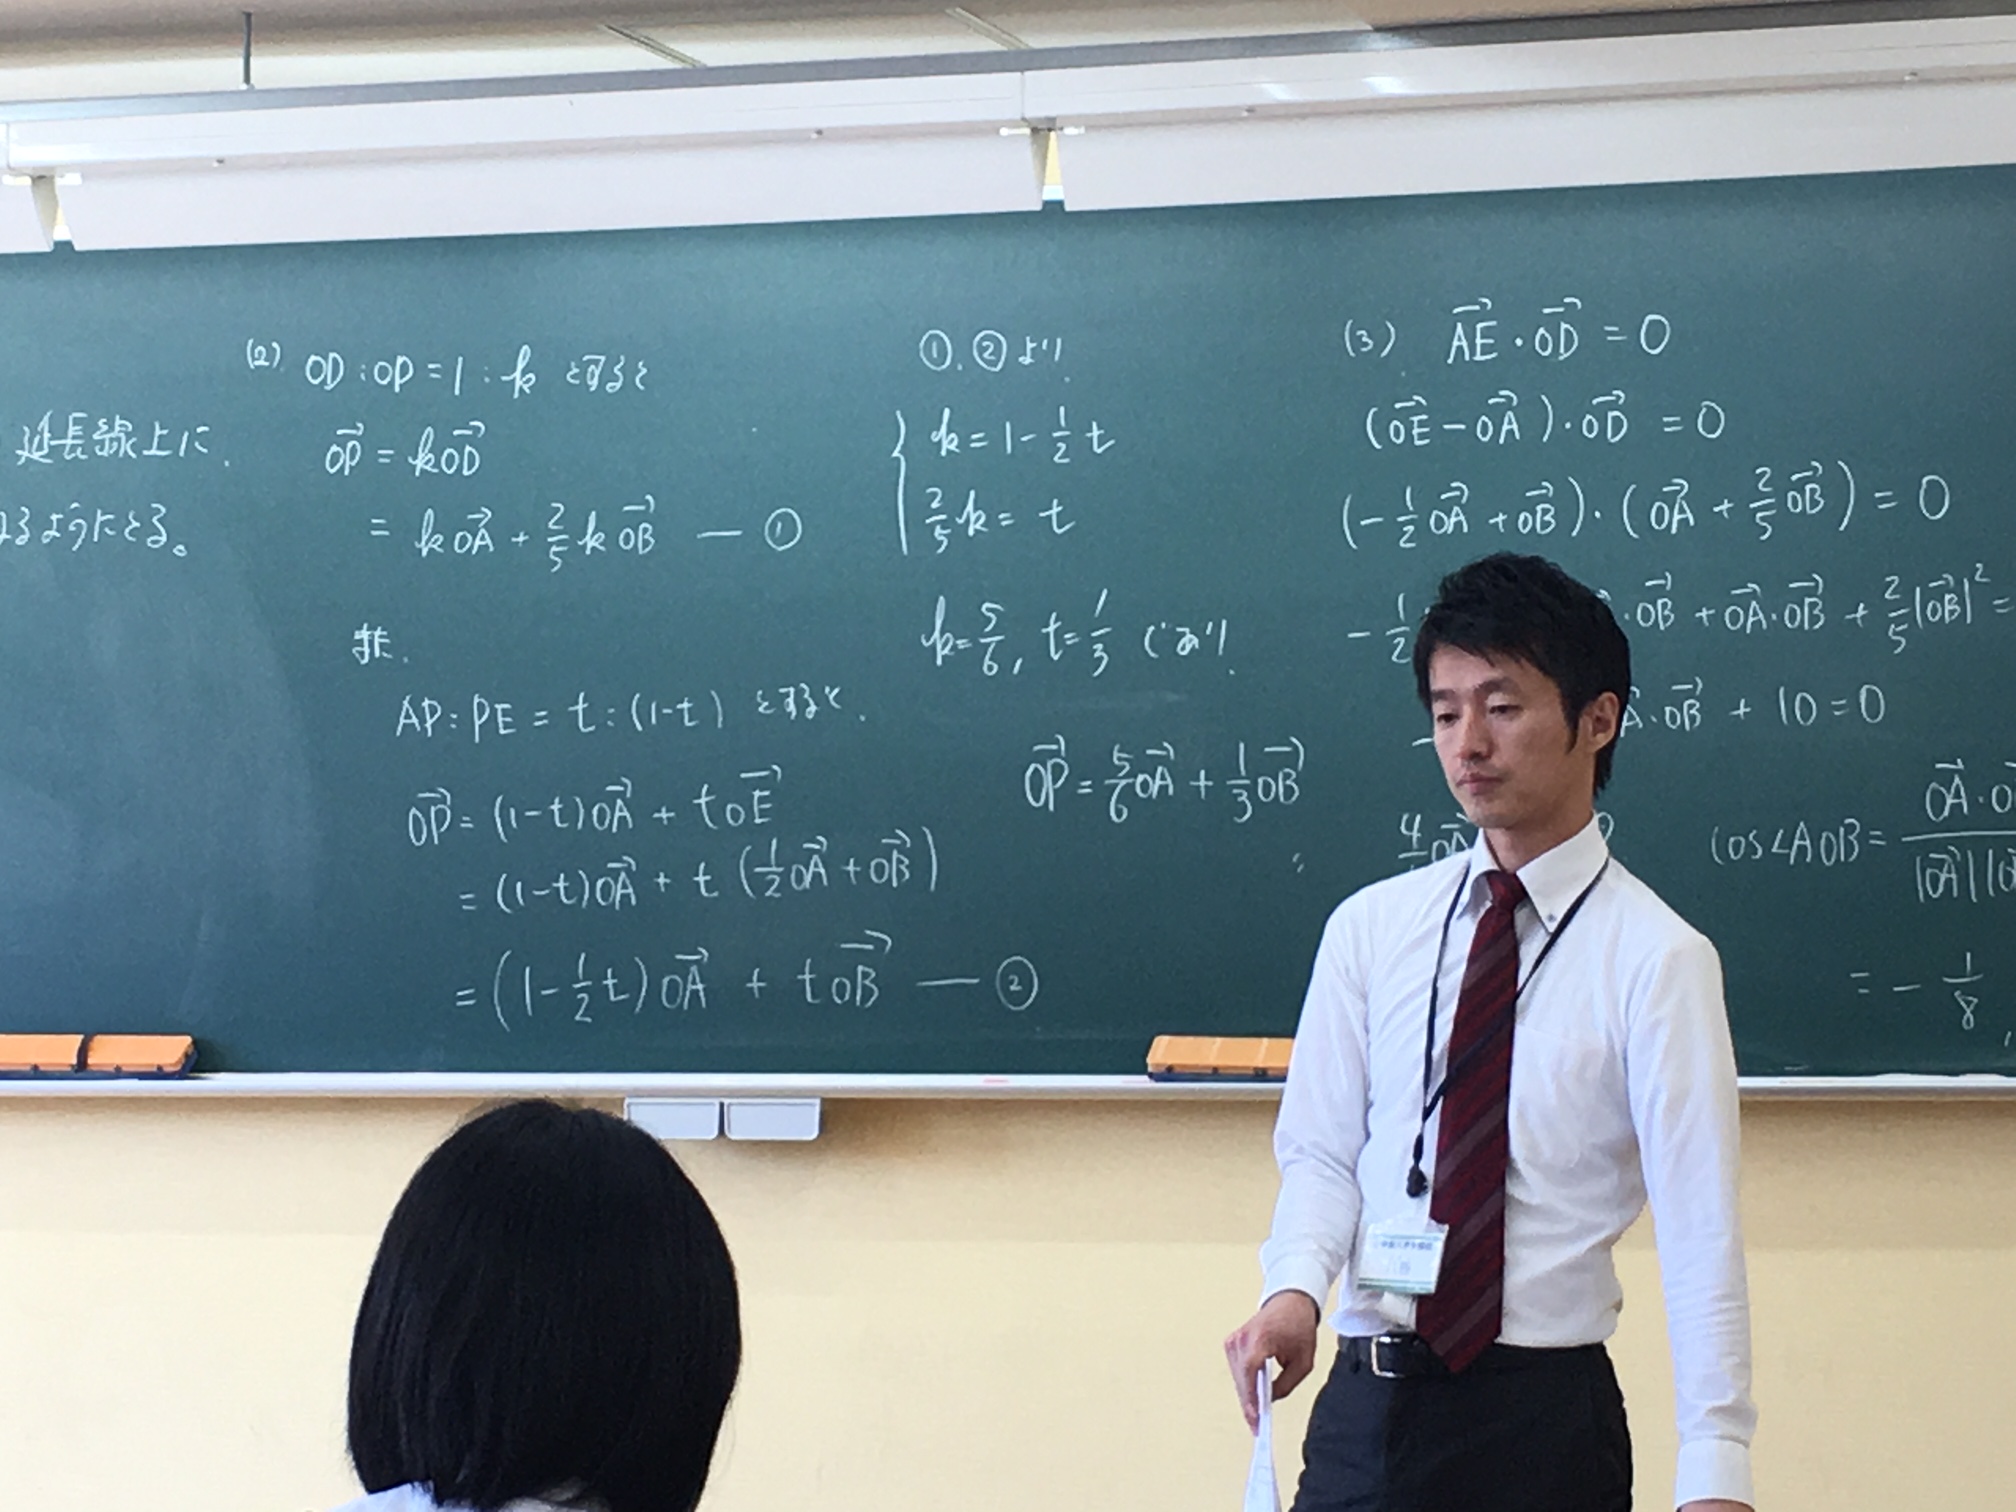 延長線上に
るようにとる。
(2) OD:OP=1:k とすると
→OP = k→OD
= k→OA + 2/5 k→OB — ①
また、
AP:PE = t:(1-t) とすると、
→OP = (1-t)→OA + t→OE
= (1-t)→OA + t(1/2→OA + →OB)
= (1-1/2t)→OA + t→OB — ②
①, ②より
{ k = 1-1/2t
2/5k = t
k=5/6, t=1/3 であり
→OP = 5/6→OA + 1/3→OB
(3) →AE・→OD = 0
(→OE-→OA)・→OD = 0
(-1/2→OA+→OB)・(→OA+2/5→OB) = 0
-1/2 ・→OB + →OA・→OB + 2/5|→OB|² =
A・→OB + 10 = 0
4 →OA
cos∠AOB = →OA・ / |→OA||
= -1/8